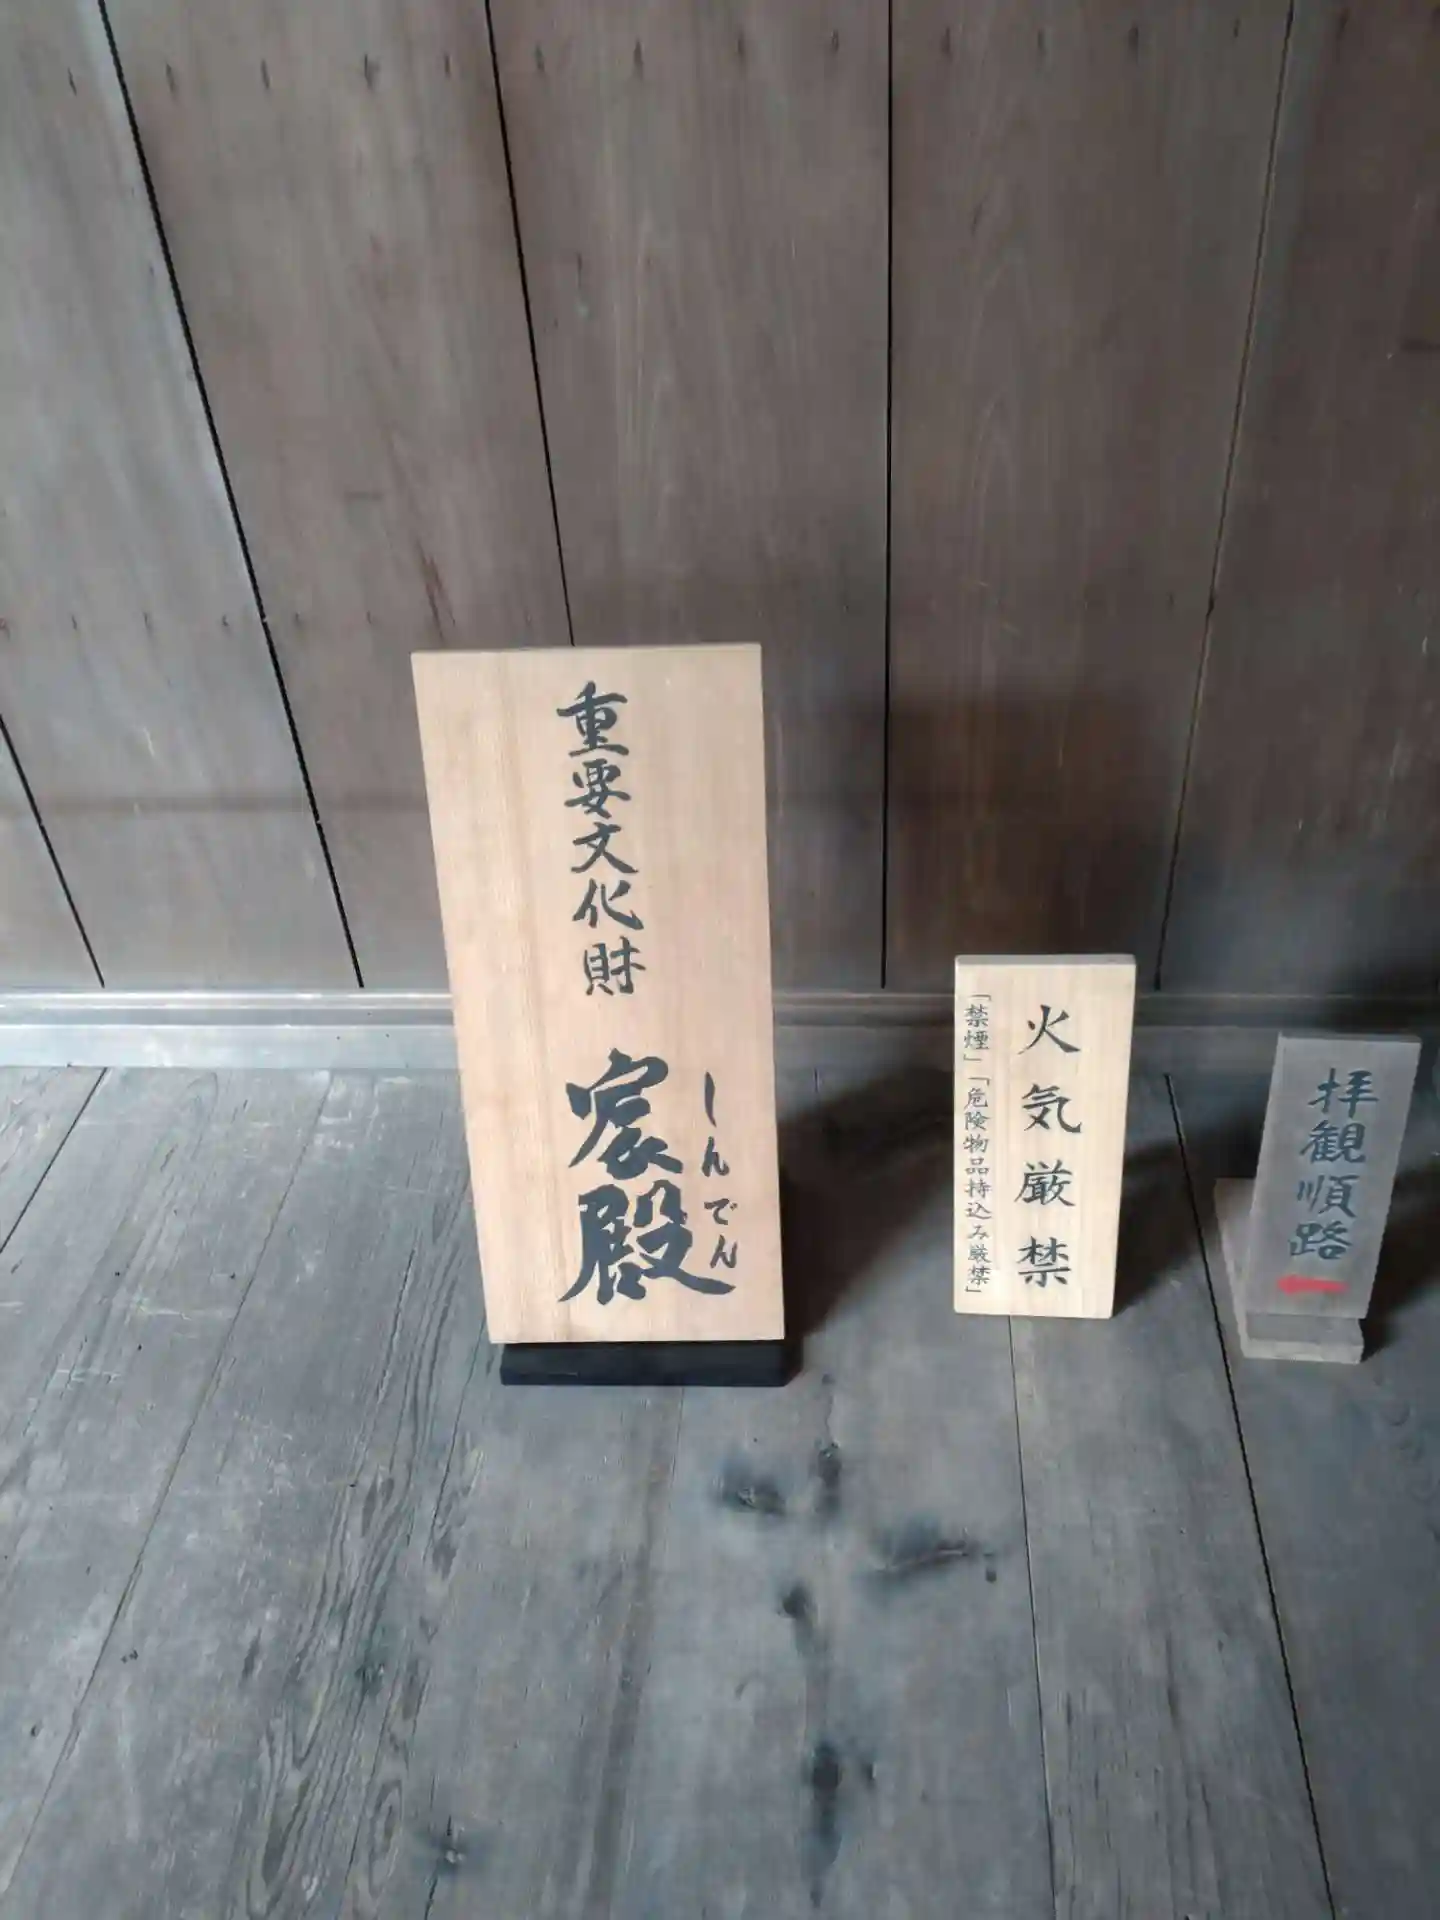 重要文化財
宸殿
しんでん
火気厳禁
「禁煙」「危険物品持込み厳禁」
拝観順路